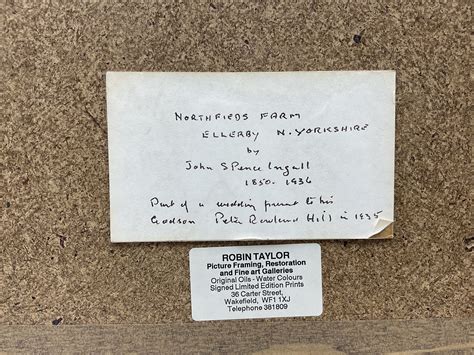 NORTHFIEDS FARM
ELLERBY N. YORKSHIRE
by
John Spence Ingall
1850. 1936
Part of a wedding present to his
Godson Peter Rowland Hill in 1935
ROBIN TAYLOR
Picture Framing, Restoration
and Fine art Galleries
Original Oils - Water Colours
Signed Limited Edition Prints
36 Carter Street,
Wakefield, WF1 1XJ
Telephone 381809